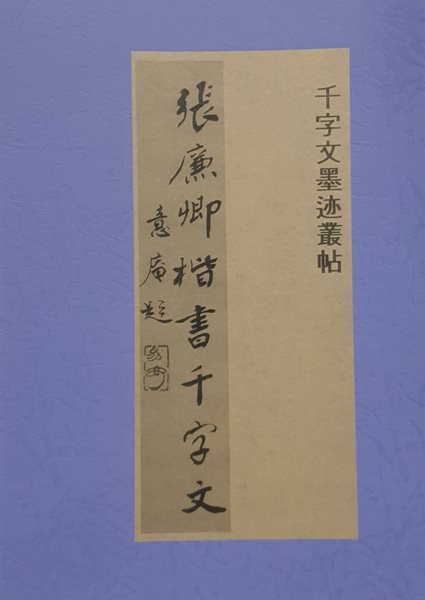 千字文墨迹叢帖
張廉卿楷書千字文
意庵題